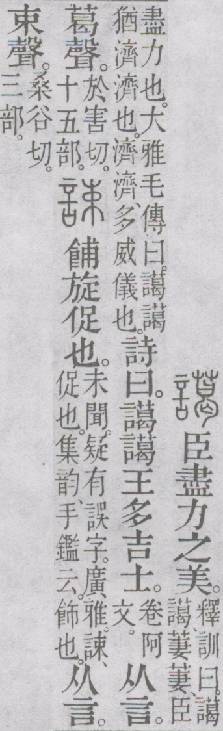 譪臣盡力之美。釋訓曰譪譪萋萋、臣
盡力也。大雅毛傳曰。譪譪猶濟濟也。濟濟、多威儀也。詩曰。譪譪王多吉士。卷阿文。从言。
葛聲。於害切。十五部。誎餔旋促也。未聞。疑有誤字。廣雅、誎、促也。集韵、手鑑云。飾也。从言。
束聲。桑谷切。三部。